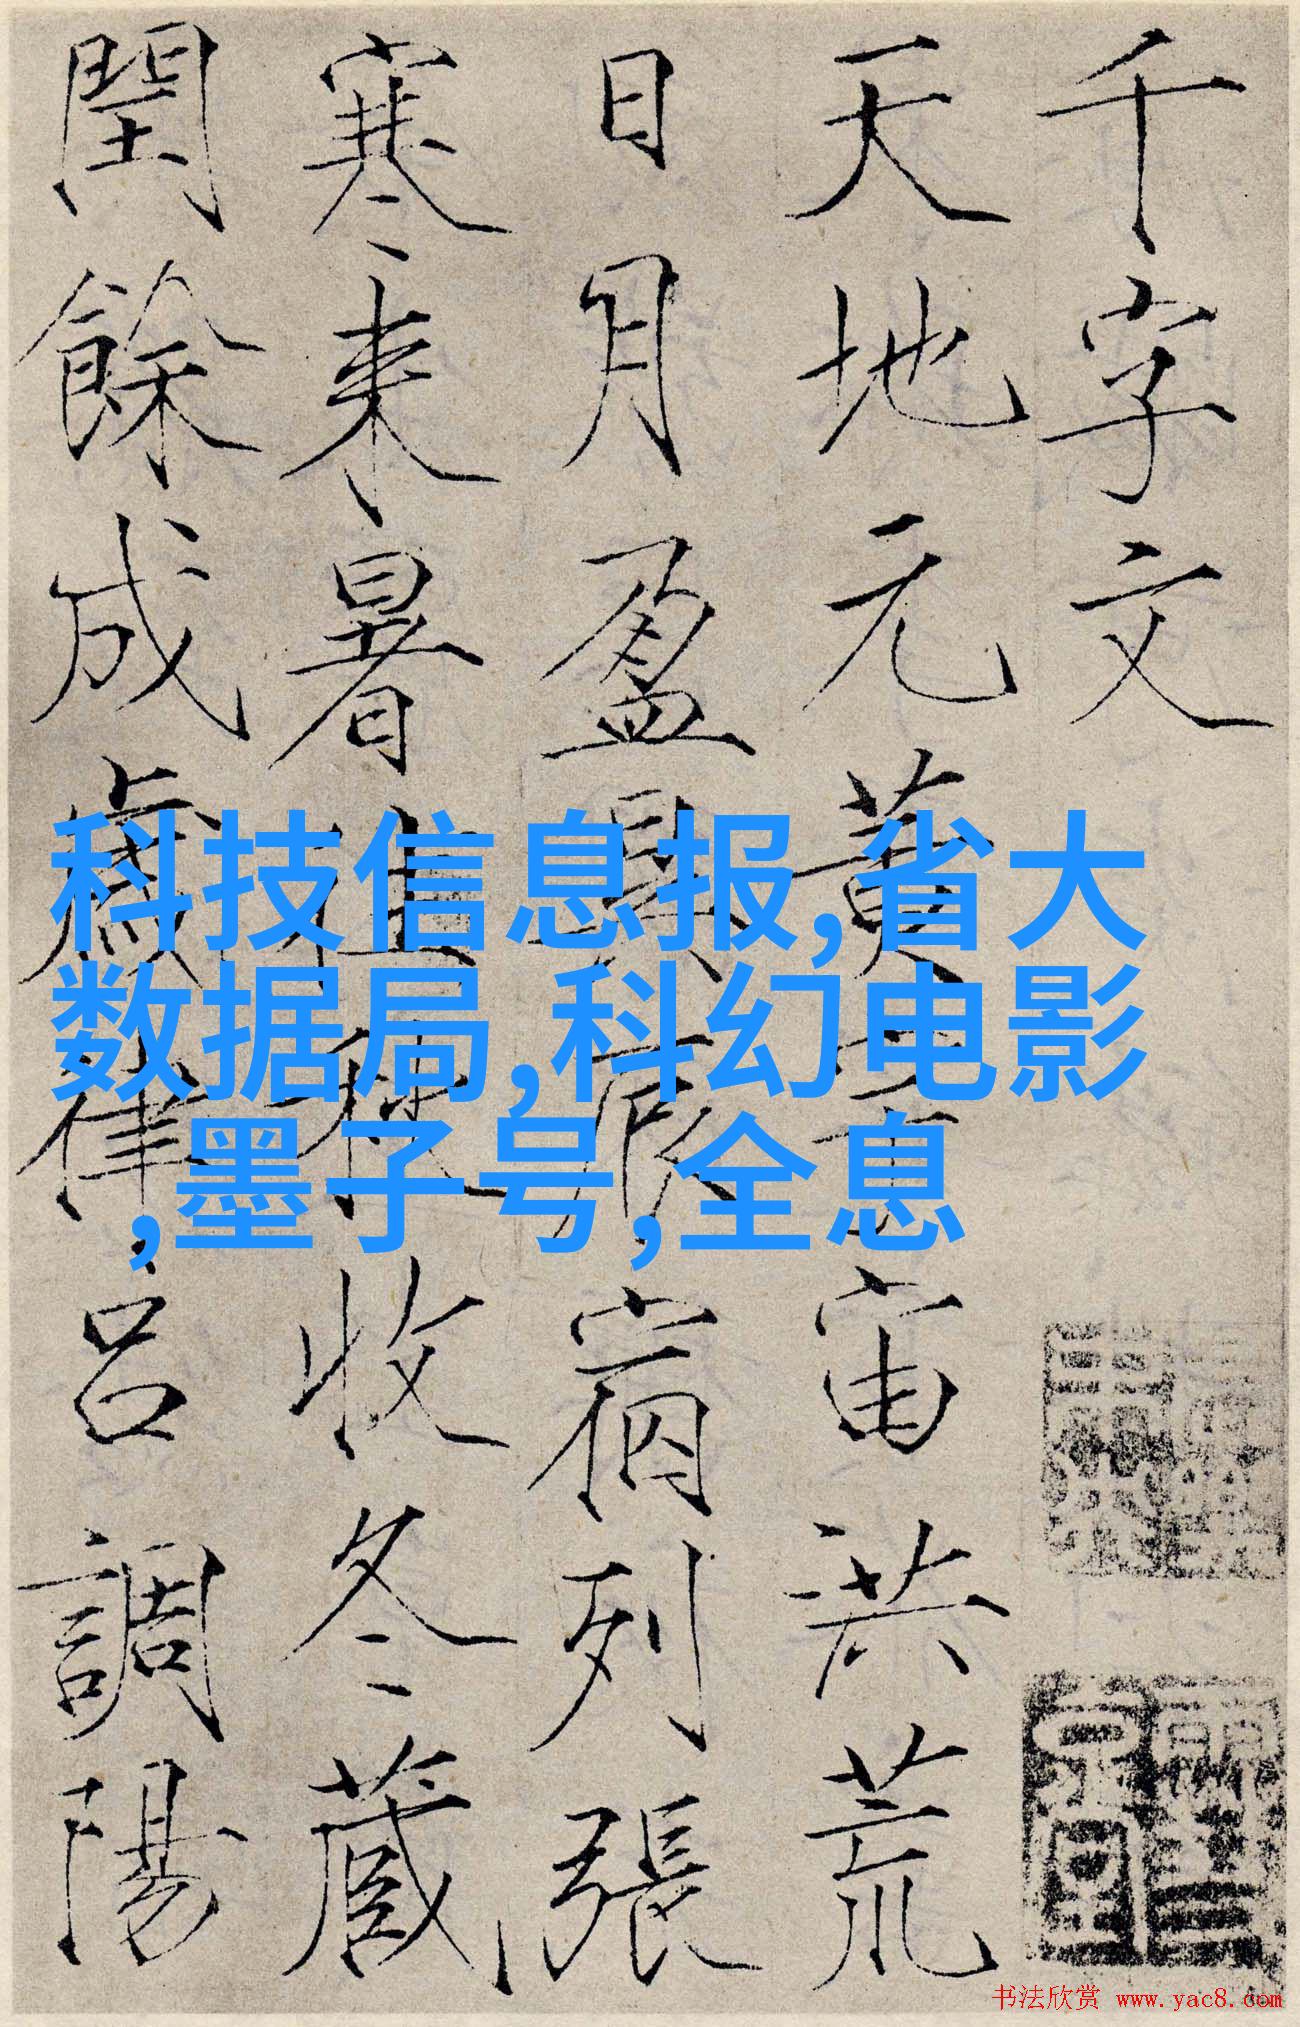 千字文
天地元黄宇宙洪荒
日月盈昃辰宿列張
寒来暑往秋收冬蔵
閏餘成歳律吕調陽
科技信息报,省大
数据局,科幻电影
,墨子号,全息
书法欣赏 www.yac8.com